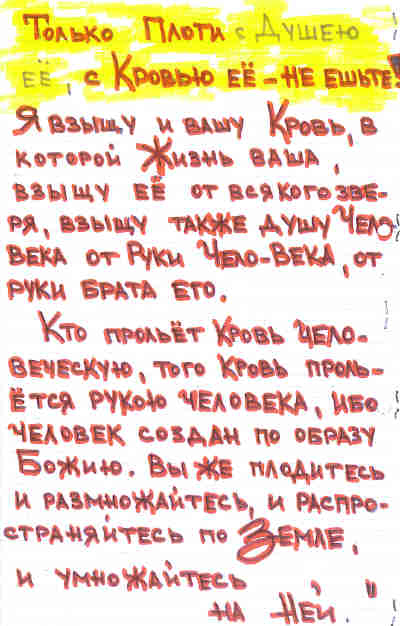 Только Плоти с Душею
её, с Кровью её – не ешьте!
Я взыщу и вашу Кровь, в
которой Жизнь ваша,
взыщу её от всякого зве-
ря, взыщу также душу Чело-
века от Руки Чело-Века, от
руки брата его.
Кто прольёт кровь чело-
веческую, того кровь проль-
ётся рукою человека, ибо
человек создан по образу
Божию. Вы же плодитесь
и размножайтесь, и распро-
страняйтесь по Земле,
и умножайтесь
на ней."